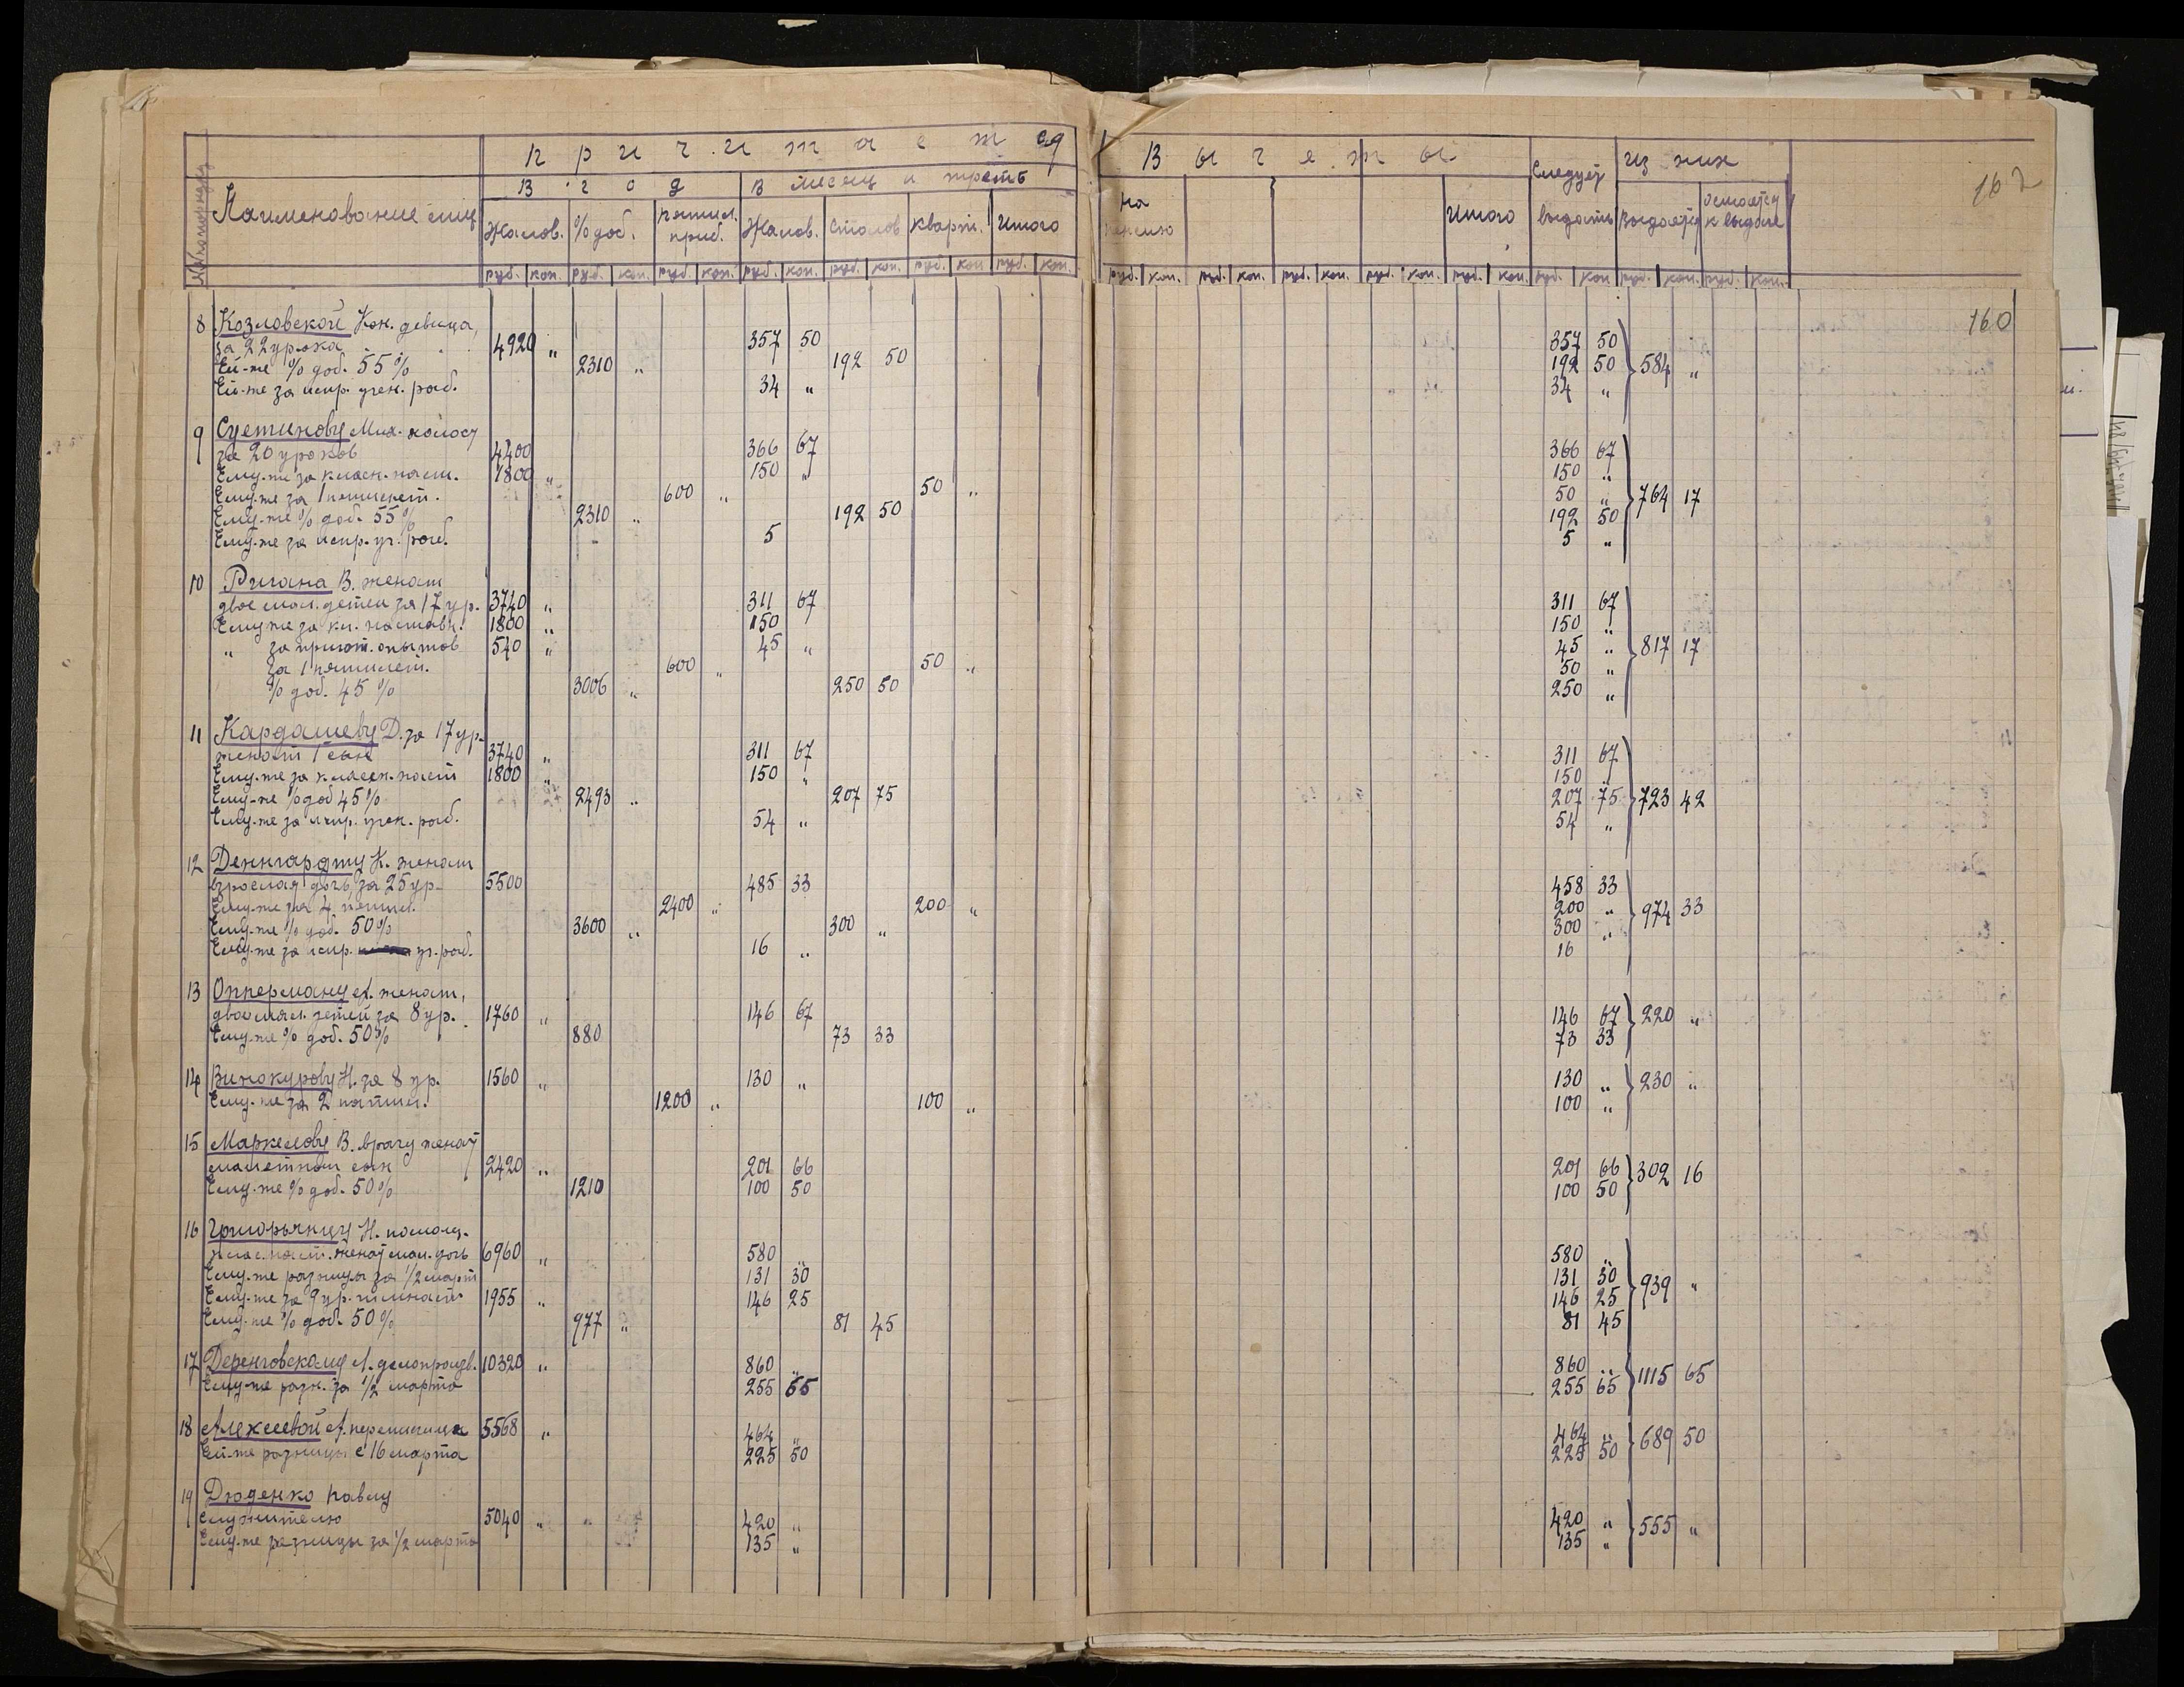 Причитается
Вычеты
Следует выдать
Из них
162
Наименование лиц
В год
В месяц и треть
Жалов.
% доб.
пятил. приб.
Жалов.
столов
кварт.
Итого
на пенсию
Итого
Выдается
Остается к выдаче
руб. коп. руб. коп. руб. коп. руб. коп. руб. коп. руб. коп. руб. коп.
руб. коп. руб. коп. руб. коп. руб. коп. руб. коп. руб. коп. руб. коп. руб. коп.
160
8 Козловской Кон. девица,
за 22 урока 4920 " 357 50 357 50
Ей-же % доб. 55% 2310 " 192 50 192 50 584 "
Ей-же за испр. учен. раб. 34 " 34 "
9 Суетинову Мих. холост
за 20 уроков 4400 366 67 366 67
Ему-же за класн. наст. 1800 " 150 " 150 "
Ему-же за 1 пятилет. 600 " 50 " 50 " 764 17
Ему-же % доб. 55% 2310 " 192 50 192 50
Ему-же за испр. уч. раб. 5 5 "
10 Ригана В. женат
двое мал. детей за 17 ур. 3740 " 311 67 311 67
Ему же за кл. наставн. 1800 " 150 150 "
" за пригот. опытов 540 " 45 " 45 " 817 17
за 1 пятилет. 600 " 50 " 50 "
% доб. 45% 3006 " 250 50 250 "
11 Кардашеву Д. за 17 ур.
женат 1 сын 3740 " 311 67 311 67
Ему-же за классн. наст 1800 " 150 " 150 "
Ему-же % доб 45% 2493 " 207 75 207 75 723 42
Ему-же за испр. учен. раб. 54 " 54 "
12 Деннгардту К. женат
взрослая дочь, за 25 ур. 5500 485 33 458 33
Ему-же за 4 пятил. 2400 " 200 " 200 " 974 33
Ему-же % доб. 50% 3600 " 300 " 300 "
Ему-же за испр. уч. раб. 16 " 16
13 Опперману А. женат,
двое мал. детей за 8 ур. 1760 " 146 67 146 67 220 "
Ему-же % доб. 50% 880 73 33 73 33
14 Винокурову Н. за 8 ур. 1560 " 130 " 130 " 230 "
Ему-же за 2 пятил. 1200 " 100 " 100 "
15 Маркелову В. врачу женат
малетний сын 2420 " 201 66 201 66 302 16
Ему-же % доб. 50% 1210 100 50 100 50
16 Григорьянцу Н. помощ.
клас. наст. женат мал. дочь 6960 " 580 " 580 "
Ему-же разницы за 1/2 март 131 30 131 30 939 "
Ему-же за 9 ур. гимнаст. 1955 " 146 25 146 25
Ему-же % доб. 50% 977 " 81 45 81 45
17 Деренговскому Л. делопроизв. 10320 " 860 " 860 " 1115 65
Ему-же разн. за 1/2 марта 255 65 255 65
18 Алексеевой А. переписчица 5568 " 464 " 464 " 689 50
Ей-же разницы с 16 марта 225 50 225 50
19 Дюденко Павлу
служителю 5040 " 420 " 420 " 555 "
Ему-же разницы за 1/2 марта 135 " 135 "